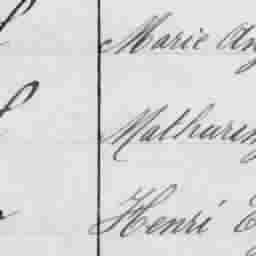 Marie Ang
Mathurin
Henri E